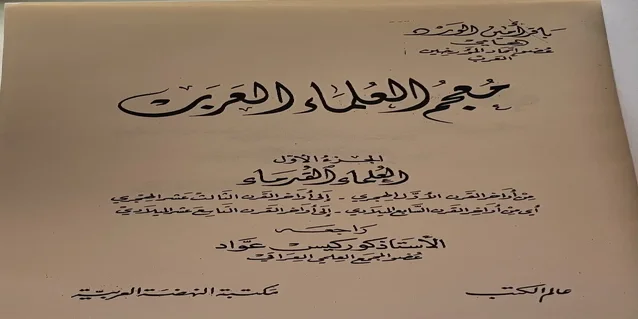 باقر أمين الورد
محامي
عضو اتحاد المؤرخين
العرب
معجم العلماء العرب
الجزء الأول
العلماء القدماء
من أواخر القرن الأول الهجري - إلى أواخر القرن الثالث عشر الهجري
أي من أواخر القرن السابع الميلادي - إلى أواخر القرن التاسع عشر الميلادي
راجعه
الأستاذ كوركيس عواد
عضو المجمع العلمي العراقي
عالم الكتب
مكتبة النهضة العربية